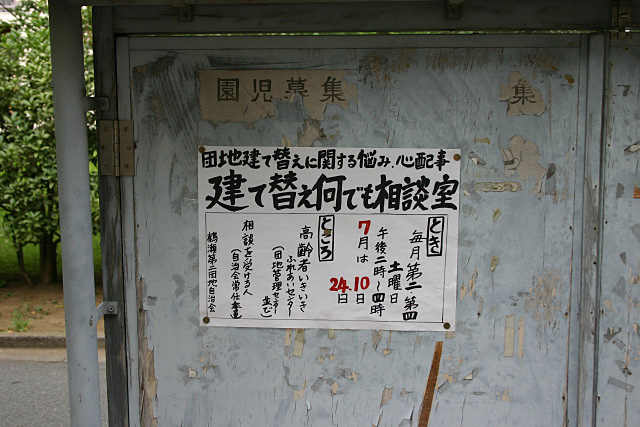 園児募集
集
団地建て替えに関する悩み、心配事
建て替え何でも相談室
とき
毎月第二 第四
土曜日
午後二時~四時
7月は 10日
24日
ところ
高齢者いきいき
ふれあいセンター
(団地管理センター並び)
相談を受ける人
(自治会常任委員)
鶴瀬第二団地自治会